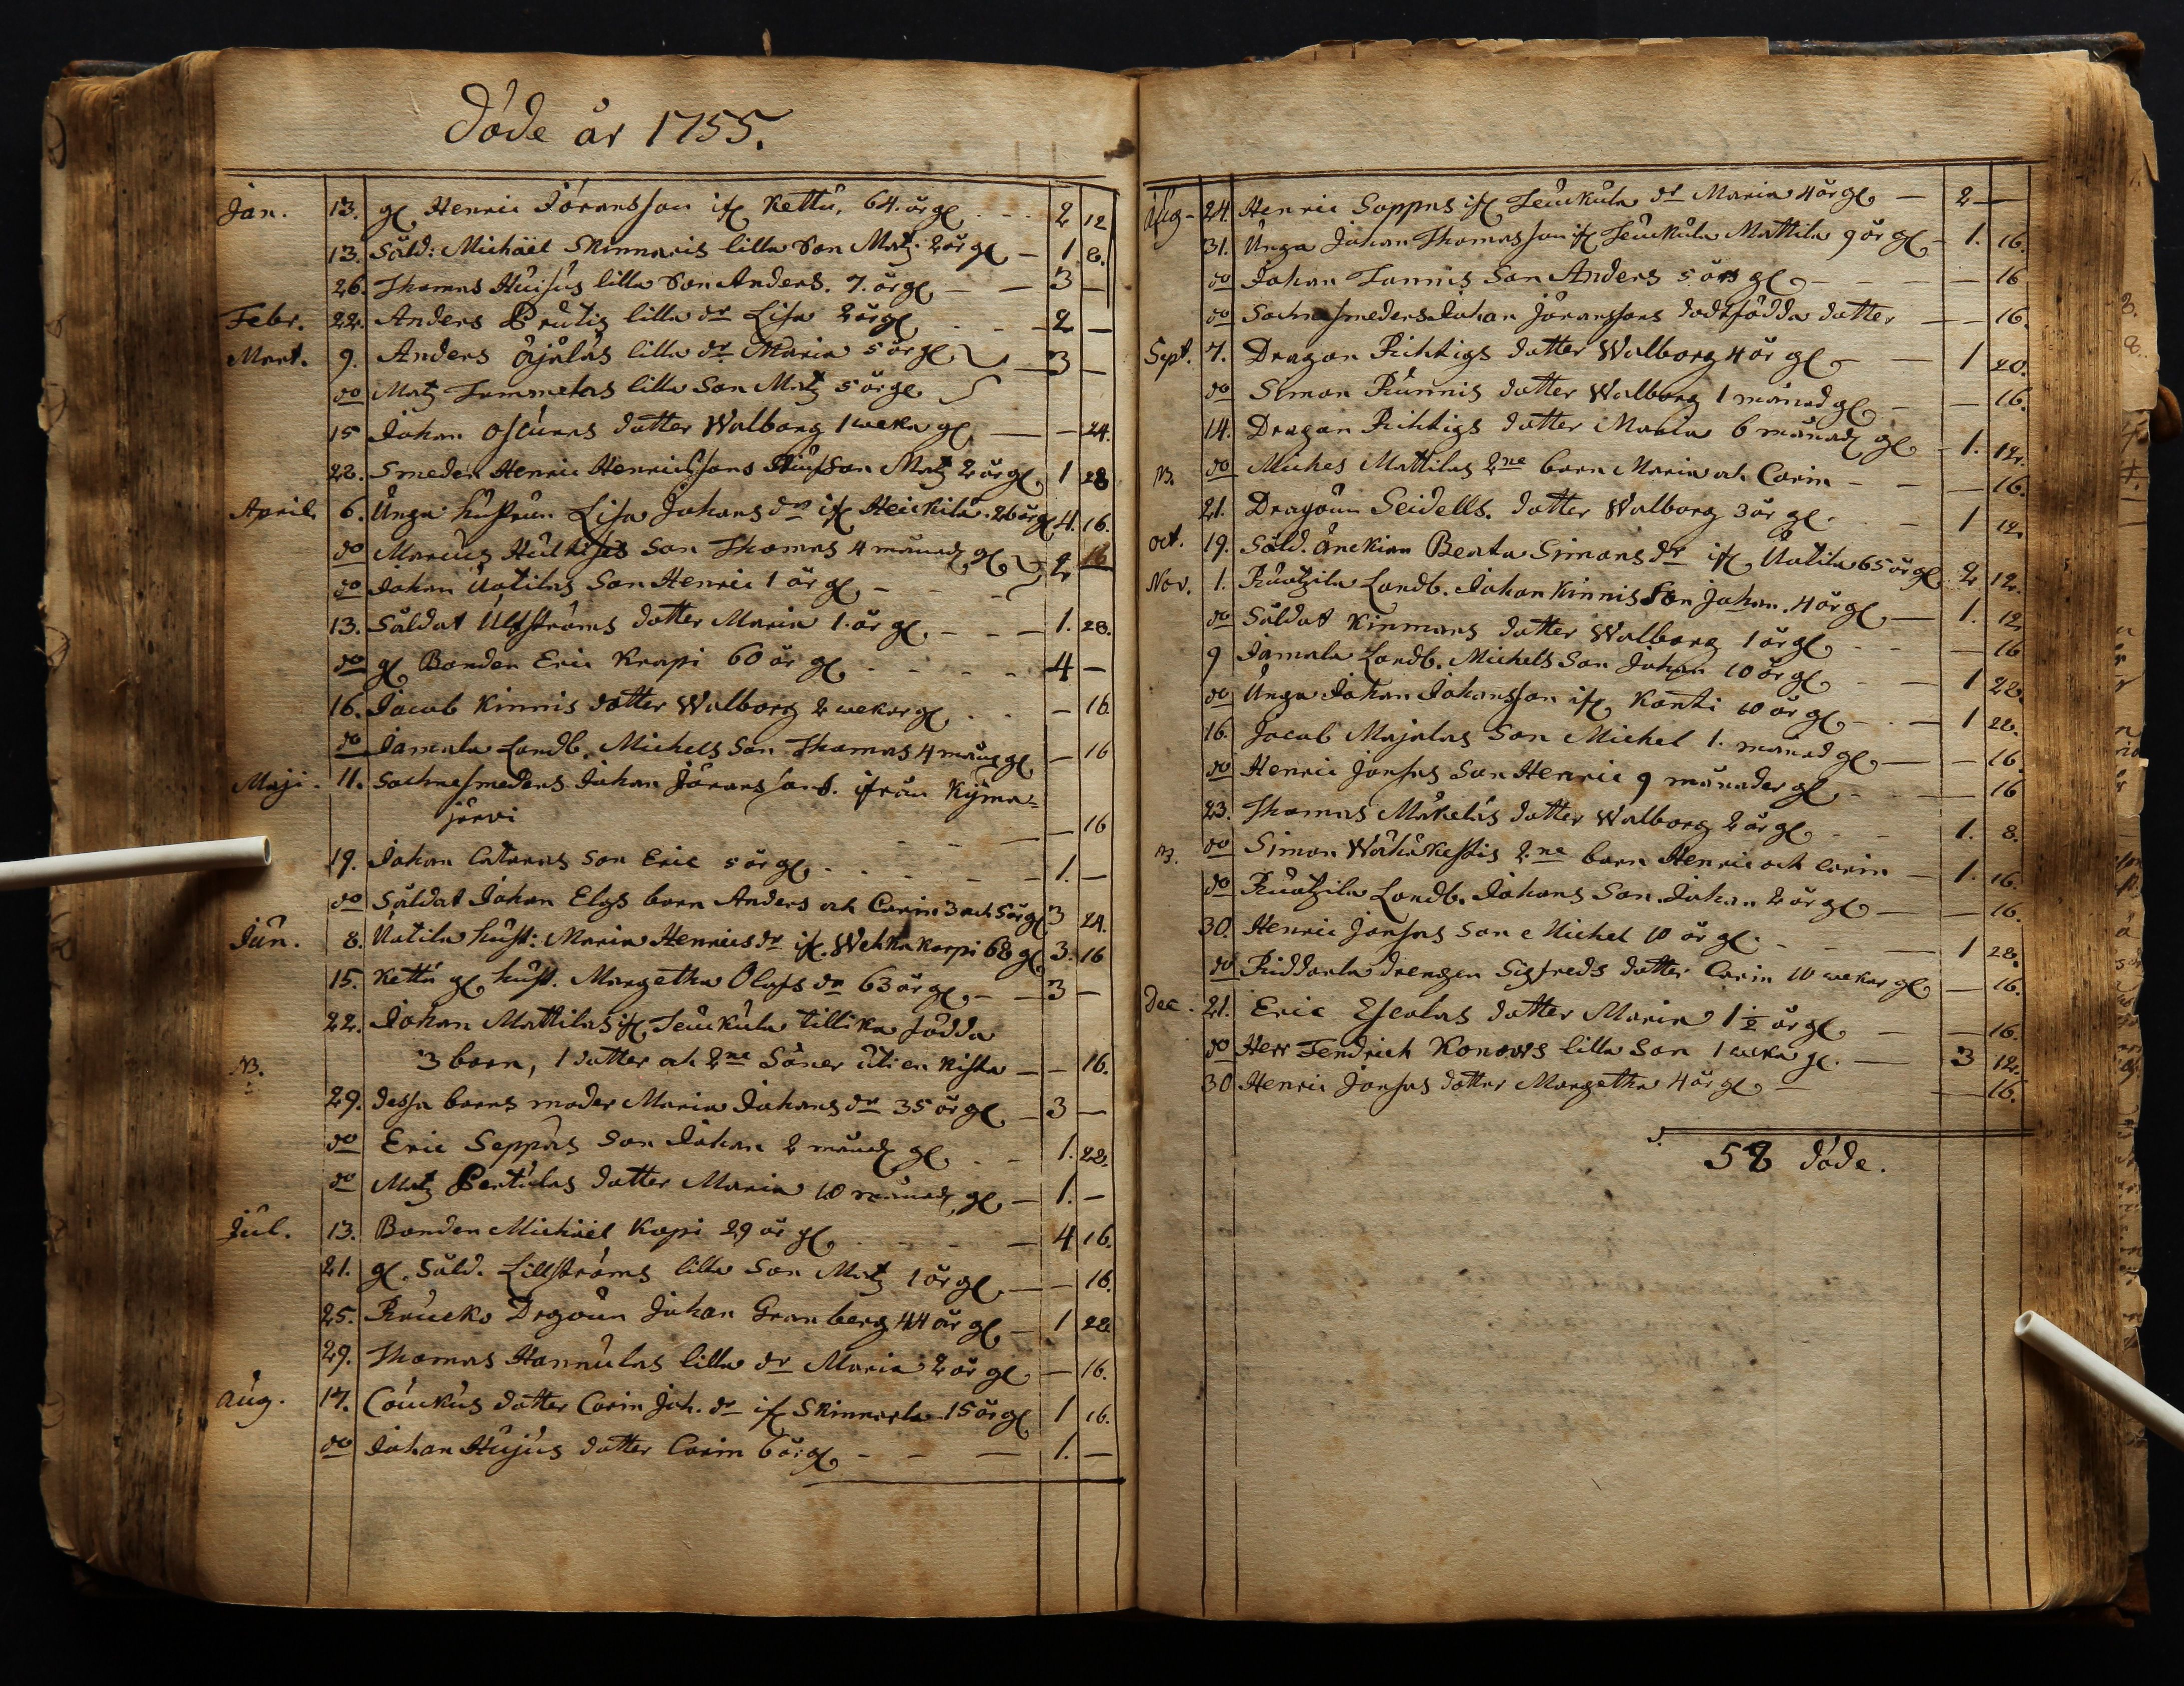 Döde år 1755.
Jan. 13. gl Henric Jöransson ifr Kettu, 64. år gl 2 12
13. Såld: Michäel Skinnaris lilla Son Matz 2 år gl 1. 8.
26. Thomas Huijus lilla Son Anders. 7. år gl 3 —
Febr. 22. Anders Prutiz lilla dr Lisa 2 år gl 2 —
Mart. 9. Anders Äjäläs lilla dr Maria 5 år gl 3 —
do Matz Tammelas lilla Son Matz 5 år gl
15 Johan dotter Walborg 1 weka gl — 24.
22. Smeden Henric Henricssons Son Matz 2 år gl 1 28
April 6. Unga hustrun Lisa Johans dr ifr Heickilä. 26 år gl 4. 16.
do Marcus Hulkises Son Thomas 4 månad gl 2 16
do Johan Uotilas Son Henric 1 år gl
13. Såldat Ulfströms dotter Maria 1. år gl 1. 28.
do gl Bonden Eric Krapi 60 år gl 4 —
16. Jacob Kinnis dotter Walborg 2 wekor gl — 16.
do Jamala Landb. Michels Son Thomas 4 mån gl — 16
Maji. 11. Sochnesmedens Johan Jöranssons. ifrån Kyme=
järvi — 16
19. Johan Son Eric 5 år gl 1. —
do Såldat Johan Elgs barn Anders och Carin 3 och 5 år gl 3 24.
Jun. 8. Uotila hust: Maria Henricsdr ifr. Wehkakorpi 68 gl 3. 16
15. Kettu gl hust. Margetha Olofs dr 63 år gl 3 —
22. Johan Mattilas ifr Seuckula tillika födda
NB. 3 barn, 1 dotter och 2ne Söner uti en kista — 16.
29. dessa barns moder Maria Johans dr 35 år gl 3 —
do Eric Seppäs Son Johan 2 månad gl 1. 22.
do Matz Pertulas dotter Maria 10 månad gl 1. —
Jul. 13. Bonden Michäel Kapi 29 år gl 4 16.
21. gl. Såld. Lillströms lilla Son Matz 1 år gl — 16.
25. Krucko Dragoun Johan Granberg 44 år gl 1 28
29. Thomas Hannulas lilla dr Maria 2 år gl — 16.
Aug. 17. Couckus dotter Carin Joh. dr ifr Skinnarla 15 år gl 1 16.
do Johan Hujus dotter Carin 6 år gl 1. —
Aug 24. Henric Soppas ifr Seuckula dr Maria 4 år gl 2 —
31. Unga Johan Thomasson ifr Seuckula Mattila 9 år gl 1. 16.
do Johan Tannis Son Anders 5 års gl — 16
do Sochnesmedens Johan Jöranssons dodfödda dotter — 16.
Sept. 7. Dragon Richtigs dotter Walborg 4 år gl 1 20.
do Simon Runnis dotter Walborg 1 månad gl — 16.
14. Dragon Richtigs dotter Maria 6 månad gl 1. 12.
NB. do Miches Mattilas 2ne barn Maria och Carin — 16.
21. Dragoun Seidells. dotter Walborg 3 år gl 1 12
Oct. 19. Såld. änckian Beata Simons dr ifr Uotila 65 år gl 2 12.
Nov. 1. Ruotzila Landb. Johan Kinnis Son Johan. 4 år gl 1. 12
do Såldat Kinmans dotter Walborg 1 år gl — 16
9 Jamala Landb. Michels Son Johan 10 år gl 1 28.
do Unga Johan Johansson ifr Kanti 10 år gl 1 28.
16. Jacob Majalas Son Michel 1. månad gl — 16.
do Henric Jonsas Son Henric 9 månader gl — 16
23. Thomas Mäkeläs dotter Walborg 2 år gl 1. 8.
NB. do Simon Wähäkestis 2ne barn Henric och Carin 1. 16.
do Ruotzila Landb. Johans Son Johan 2 år gl — 16.
30. Henric Jonsas Son Michel 10 år gl 1 28.
do Riddarla drengen Sigfreds dotter Carin 10 wekor gl — 16.
Dec. 21. Eric Escolas dotter Maria 1 1/2 år gl — 16.
do Herr Fendrich Konows lilla Son 1 weka gl. 3 12.
30 Henric Jonsas dotter Margetha 4 år gl — 16.
58 döde.